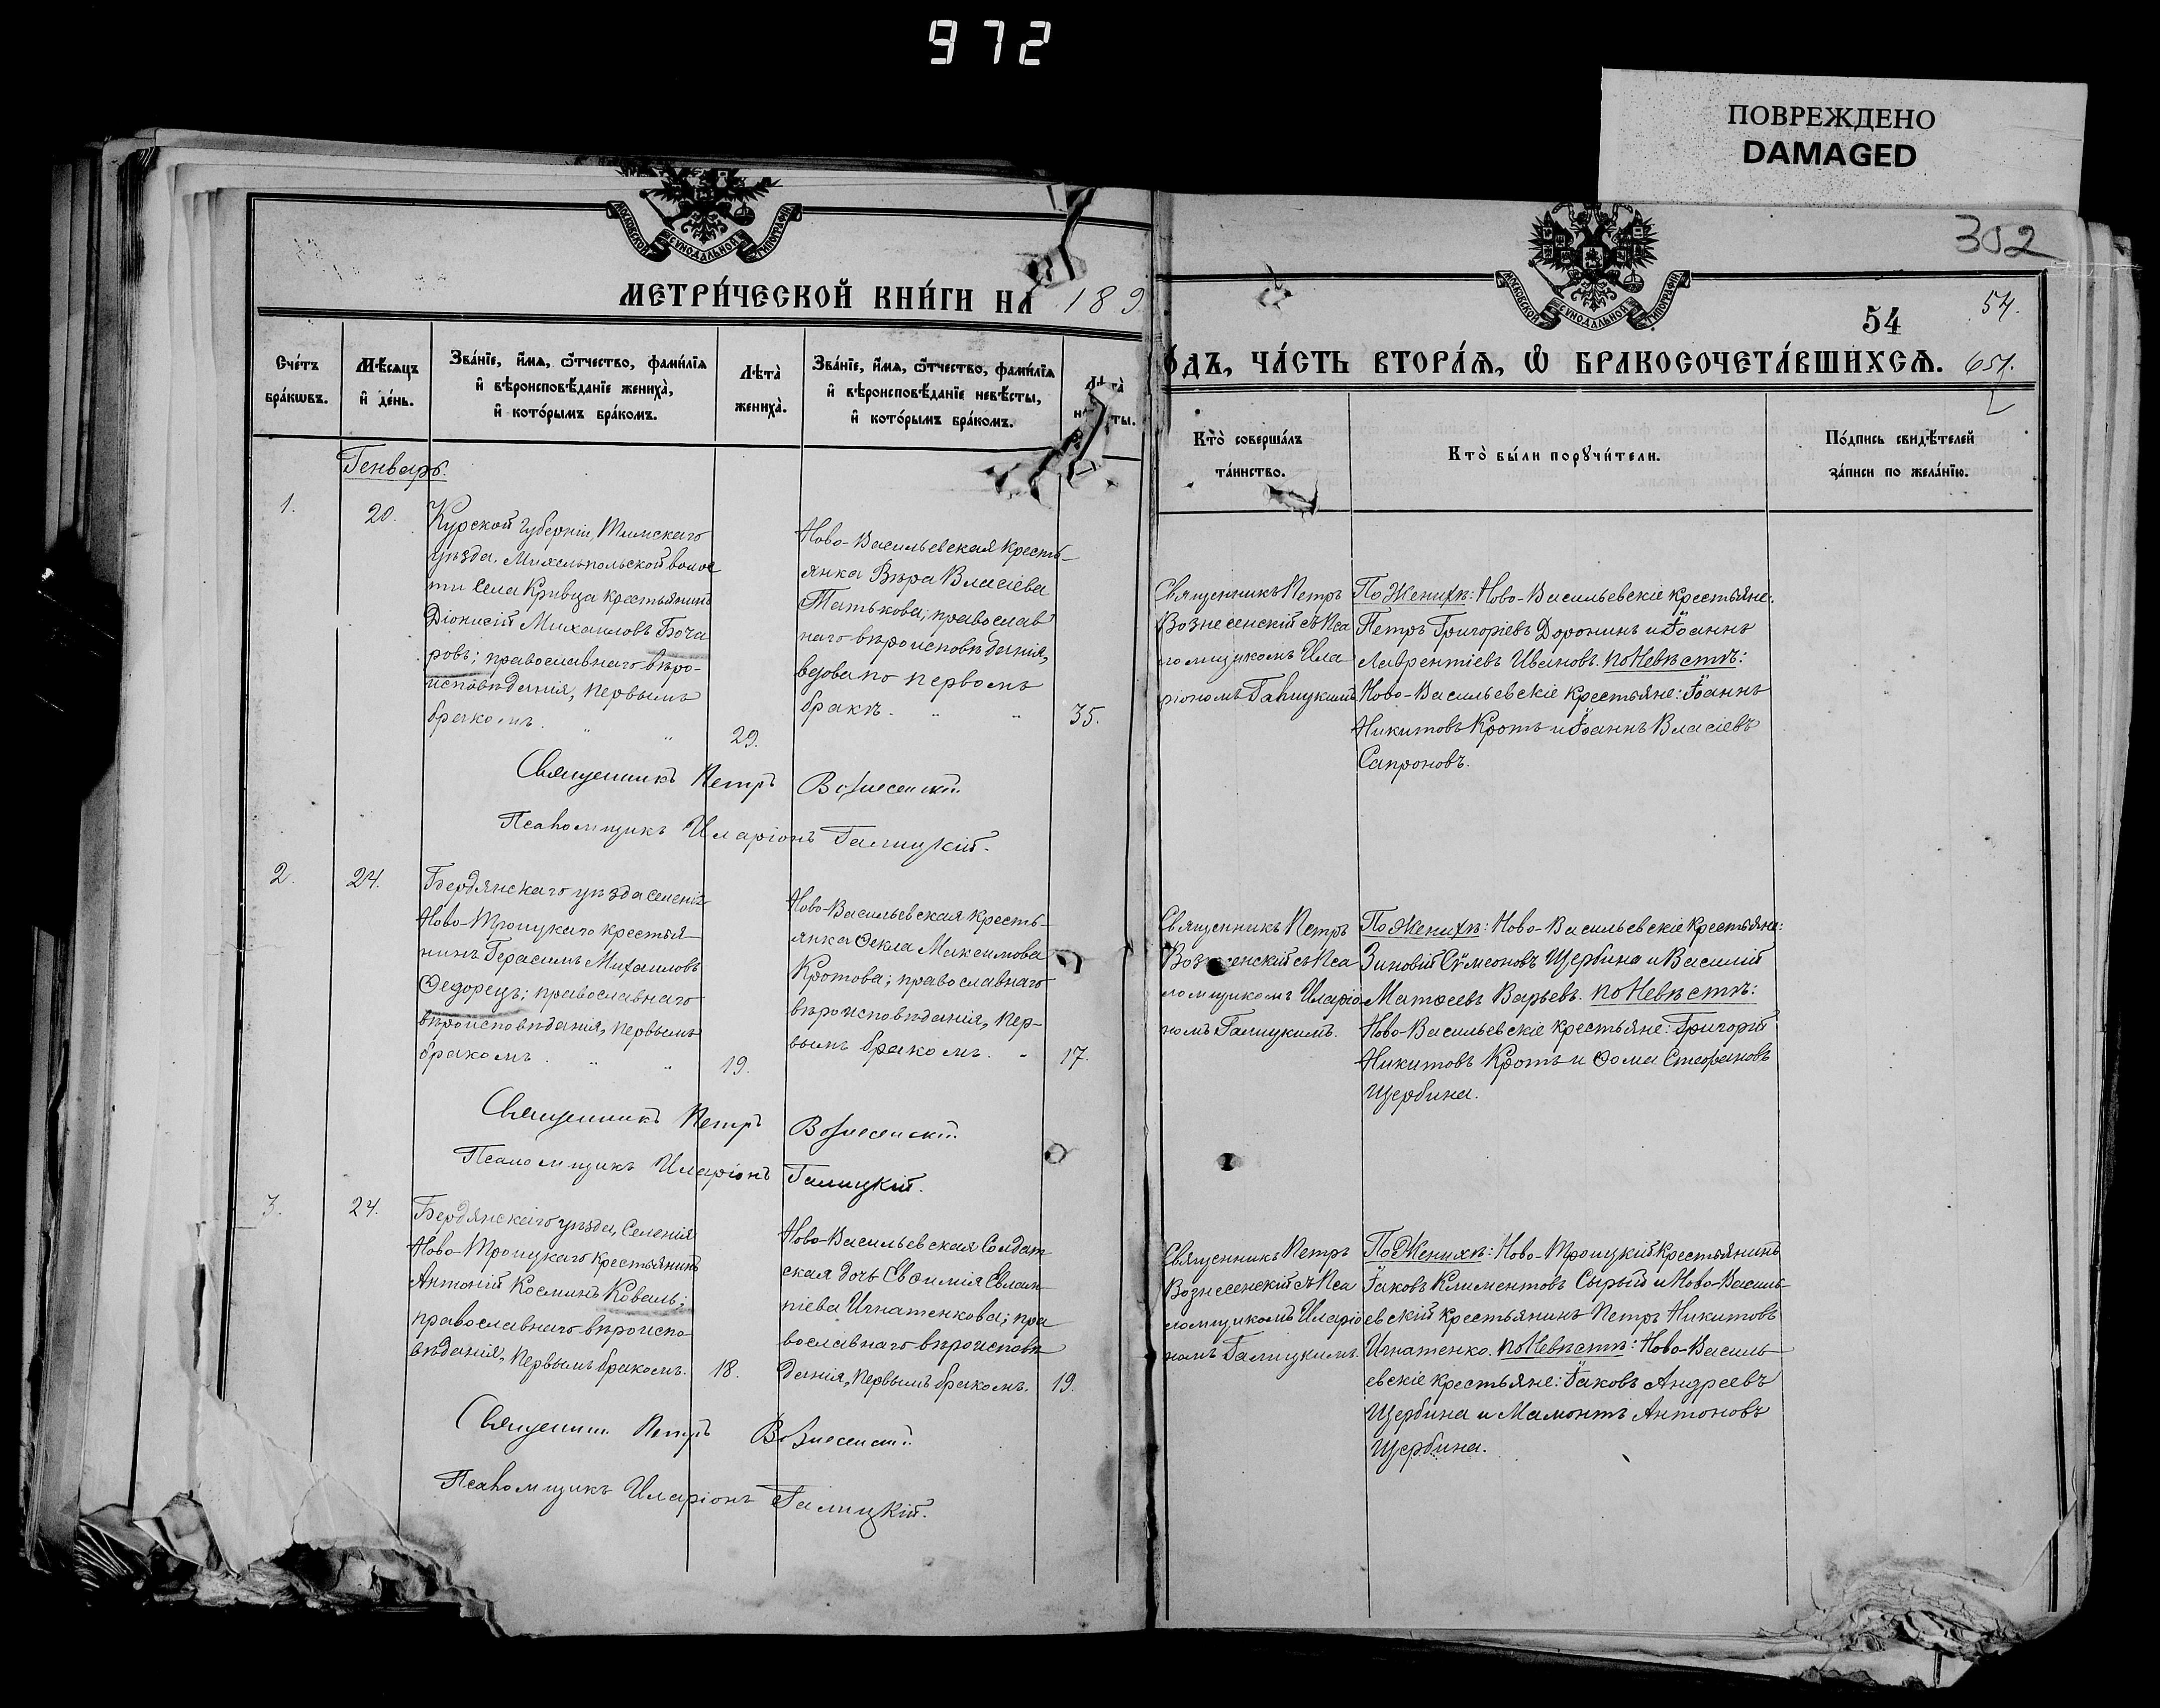 972
ПОВРЕЖДЕНО
DAMAGED
302
МОСКОВСКОЙ СУНОДАЛЬНОЙ ТИПОГРАФІИ
МОСКОВСКОЙ СУНОДАЛЬНОЙ ТИПОГРАФІИ
МЕТРИ́ЧЕСКОЙ КНИ́ГИ НА 189
54
54.
ОДЪ, ЧА́СТЬ ВТОРА́Я, Ѿ БРАКОСОЧЕТА́ВШИХСѦ.
651.
Сче́тъ
бра́кѡвъ.
Мѣ́сяцъ
и҆ де́нь.
Зва́нїе, и҆́мѧ, ѻ҆́тчество, фами́лїѧ
и҆ вѣроисповѣ́данїе жениха̀,
и҆ кото́рымъ бра́комъ.
Лѣ́та̀
жениха̀.
Зва́нїе, и҆́мѧ, ѻ҆́тчество, фами́лїѧ
и҆ вѣроисповѣ́данїе невѣ́сты,
и҆ кото́рымъ бра́комъ.
Кто̀ соверша́лъ
та́инство.
Кто̀ бы́ли порꙋчи́тели.
По́дпись свидѣ́телей
за́писи по жела́нїю.
Генварь.
1.
20.
Курской губерніи, Тимскаго
уѣзда, Михельпольской волос
ти села Кривца крестьянинъ
Діонисій Михаиловъ Боча
ровъ; православнаго вѣро-
исповѣданія, первымъ
бракомъ. " "
29.
Ново-Васильевская кресть-
янка Вѣра Власіева
Татькова; православ
наго вѣроисповѣданія,
вдова по первомъ
бракѣ. " "
35.
Священникъ Петръ
Вознесенскій съ Пса
ломщикомъ Ила
ріономъ Галицкимъ
По Женихѣ: Ново-Васильевскіе крестьяне:
Петръ Григоріевъ Доронинъ и Іоаннъ
Лаврентіевъ Ивановъ. по Невѣстѣ:
Ново-Васильевскіе крестьяне: Іоаннъ
Никитовъ Кротъ и Іоаннъ Власіевъ
Сапроновъ.
Священникъ Петръ Вознесенскій
Псаломщикъ Иларіонъ Галицкій.
2.
24.
Бердянскаго уѣзда селенія
Ново-Троицкаго крестья-
нинъ Герасимъ Михаиловъ
Ѳедорецъ; православнаго
вѣроисповѣданія, первымъ
бракомъ. " "
19.
Ново-Васильевская кресть-
янка Ѳекла Максимова
Кротова; православнаго
вѣроисповѣданія, пер-
вымъ бракомъ. "
17.
Священникъ Петръ
Вознесенскій съ Пса
ломщикомъ Иларіо
номъ Галицкимъ.
По Женихѣ: Ново-Васильевскіе крестьяне:
Зиновій Сѵмеоновъ Щербина и Василій
Матѳеевъ Варьевъ. по Невѣстѣ:
Ново-Васильевскіе крестьяне: Григорій
Никитовъ Кротъ и Ѳома Стефановъ
Щербина.
Священникъ Петръ Вознесенскій
Псаломщикъ Иларіонъ Галицкій.
3.
24.
Бердянскаго уѣзда, Селенія
Ново-Троицкаго крестьянинъ
Антоній Косминъ Коваль;
православнаго вѣроиспо-
вѣданія, первымъ бракомъ.
18.
Ново-Васильевская Солдат
ская дочь Евѳимія Евлам
піева Игнатенкова; пра
вославнаго вѣроисповѣ
данія, первымъ бракомъ.
19.
Священникъ Петръ
Вознесенскій съ Пса
ломщикомъ Иларіо
номъ Галицкимъ.
По Женихѣ: Ново-Троицкій крестьянинъ
Іаковъ Климентовъ Сырый и Ново-Василь-
евскій крестьянинъ Петръ Никитовъ
Игнатенко. по Невѣстѣ: Ново-Василь-
евскіе крестьяне: Іаковъ Андреевъ
Щербина и Мамонтъ Антоновъ
Щербина.
Священникъ Петръ Вознесенскій
Псаломщикъ Иларіонъ Галицкій.